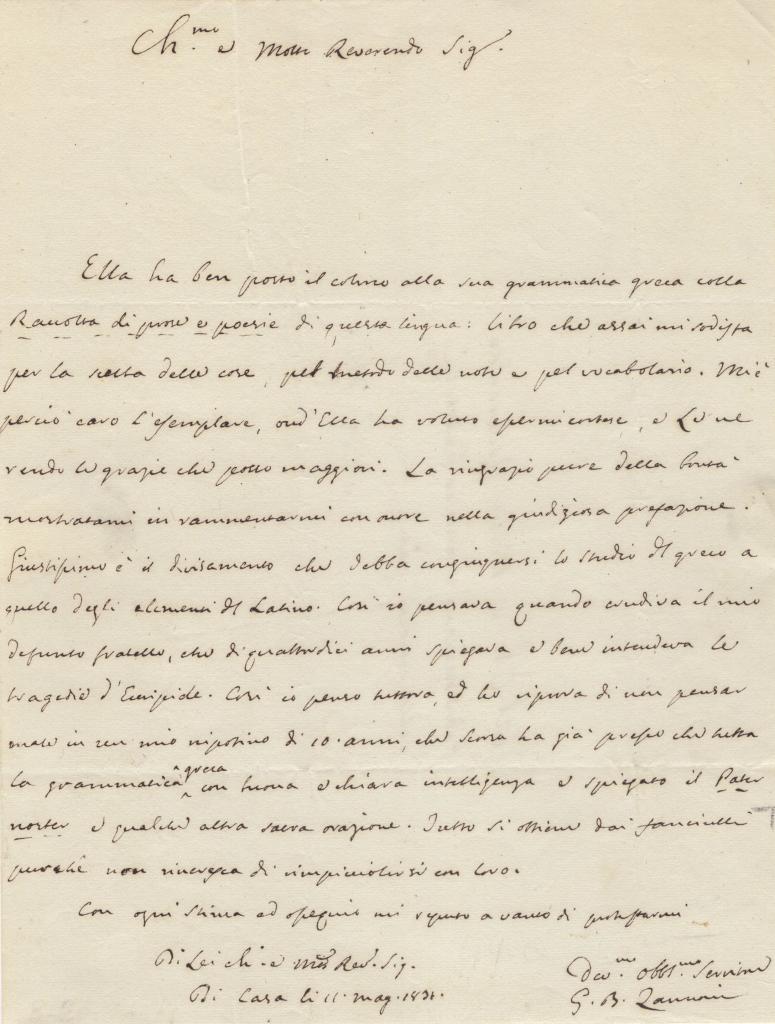 Ch.mo e Molto Reverendo Sig.r
Ella ha ben posto il colmo alla sua grammatica greca colla
Raccolta di prose e poesie di questa lingua: libro che assai mi sodisfa
per la scelta delle cose, pel metodo delle note e pel vocabolario. M'è
perciò caro l'esemplare, ond'Ella ha voluto essermi cortese, e Le ne
rendo le grazie che posso maggiori. La ringrazio pure della bontà
mostratami in rammentarmi con onore nella giudiziosa prefazione.
Giustissimo è il divisamento che debba congiugnersi lo studio del greco a
quello degli elementi del Latino. Così io pensava quando erudiva il mio
defunto fratello, che di quattordici anni spiegava e bene intendeva le
tragedie d'Euripide. Così io penso tuttora, ed ho riprova di non pensar
male in un mio nipotino di 10. anni, che scorsa ha già presso che tutta
la grammatica greca con buona e chiara intelligenza e spiegato il Pater
noster e qualche altra sacra orazione. Tutto si ottiene dai fanciulli
purchè non rincresca di rimpicciolirsi con loro.
Con ogni stima ed ossequio mi reputo a vanto di protestarmi
Di Lei ch. e Mto Rev. Sig.
Di Casa li 11. mag. 1831.
Dev.mo Obbl.mo Servitore
G. B. Zannoni